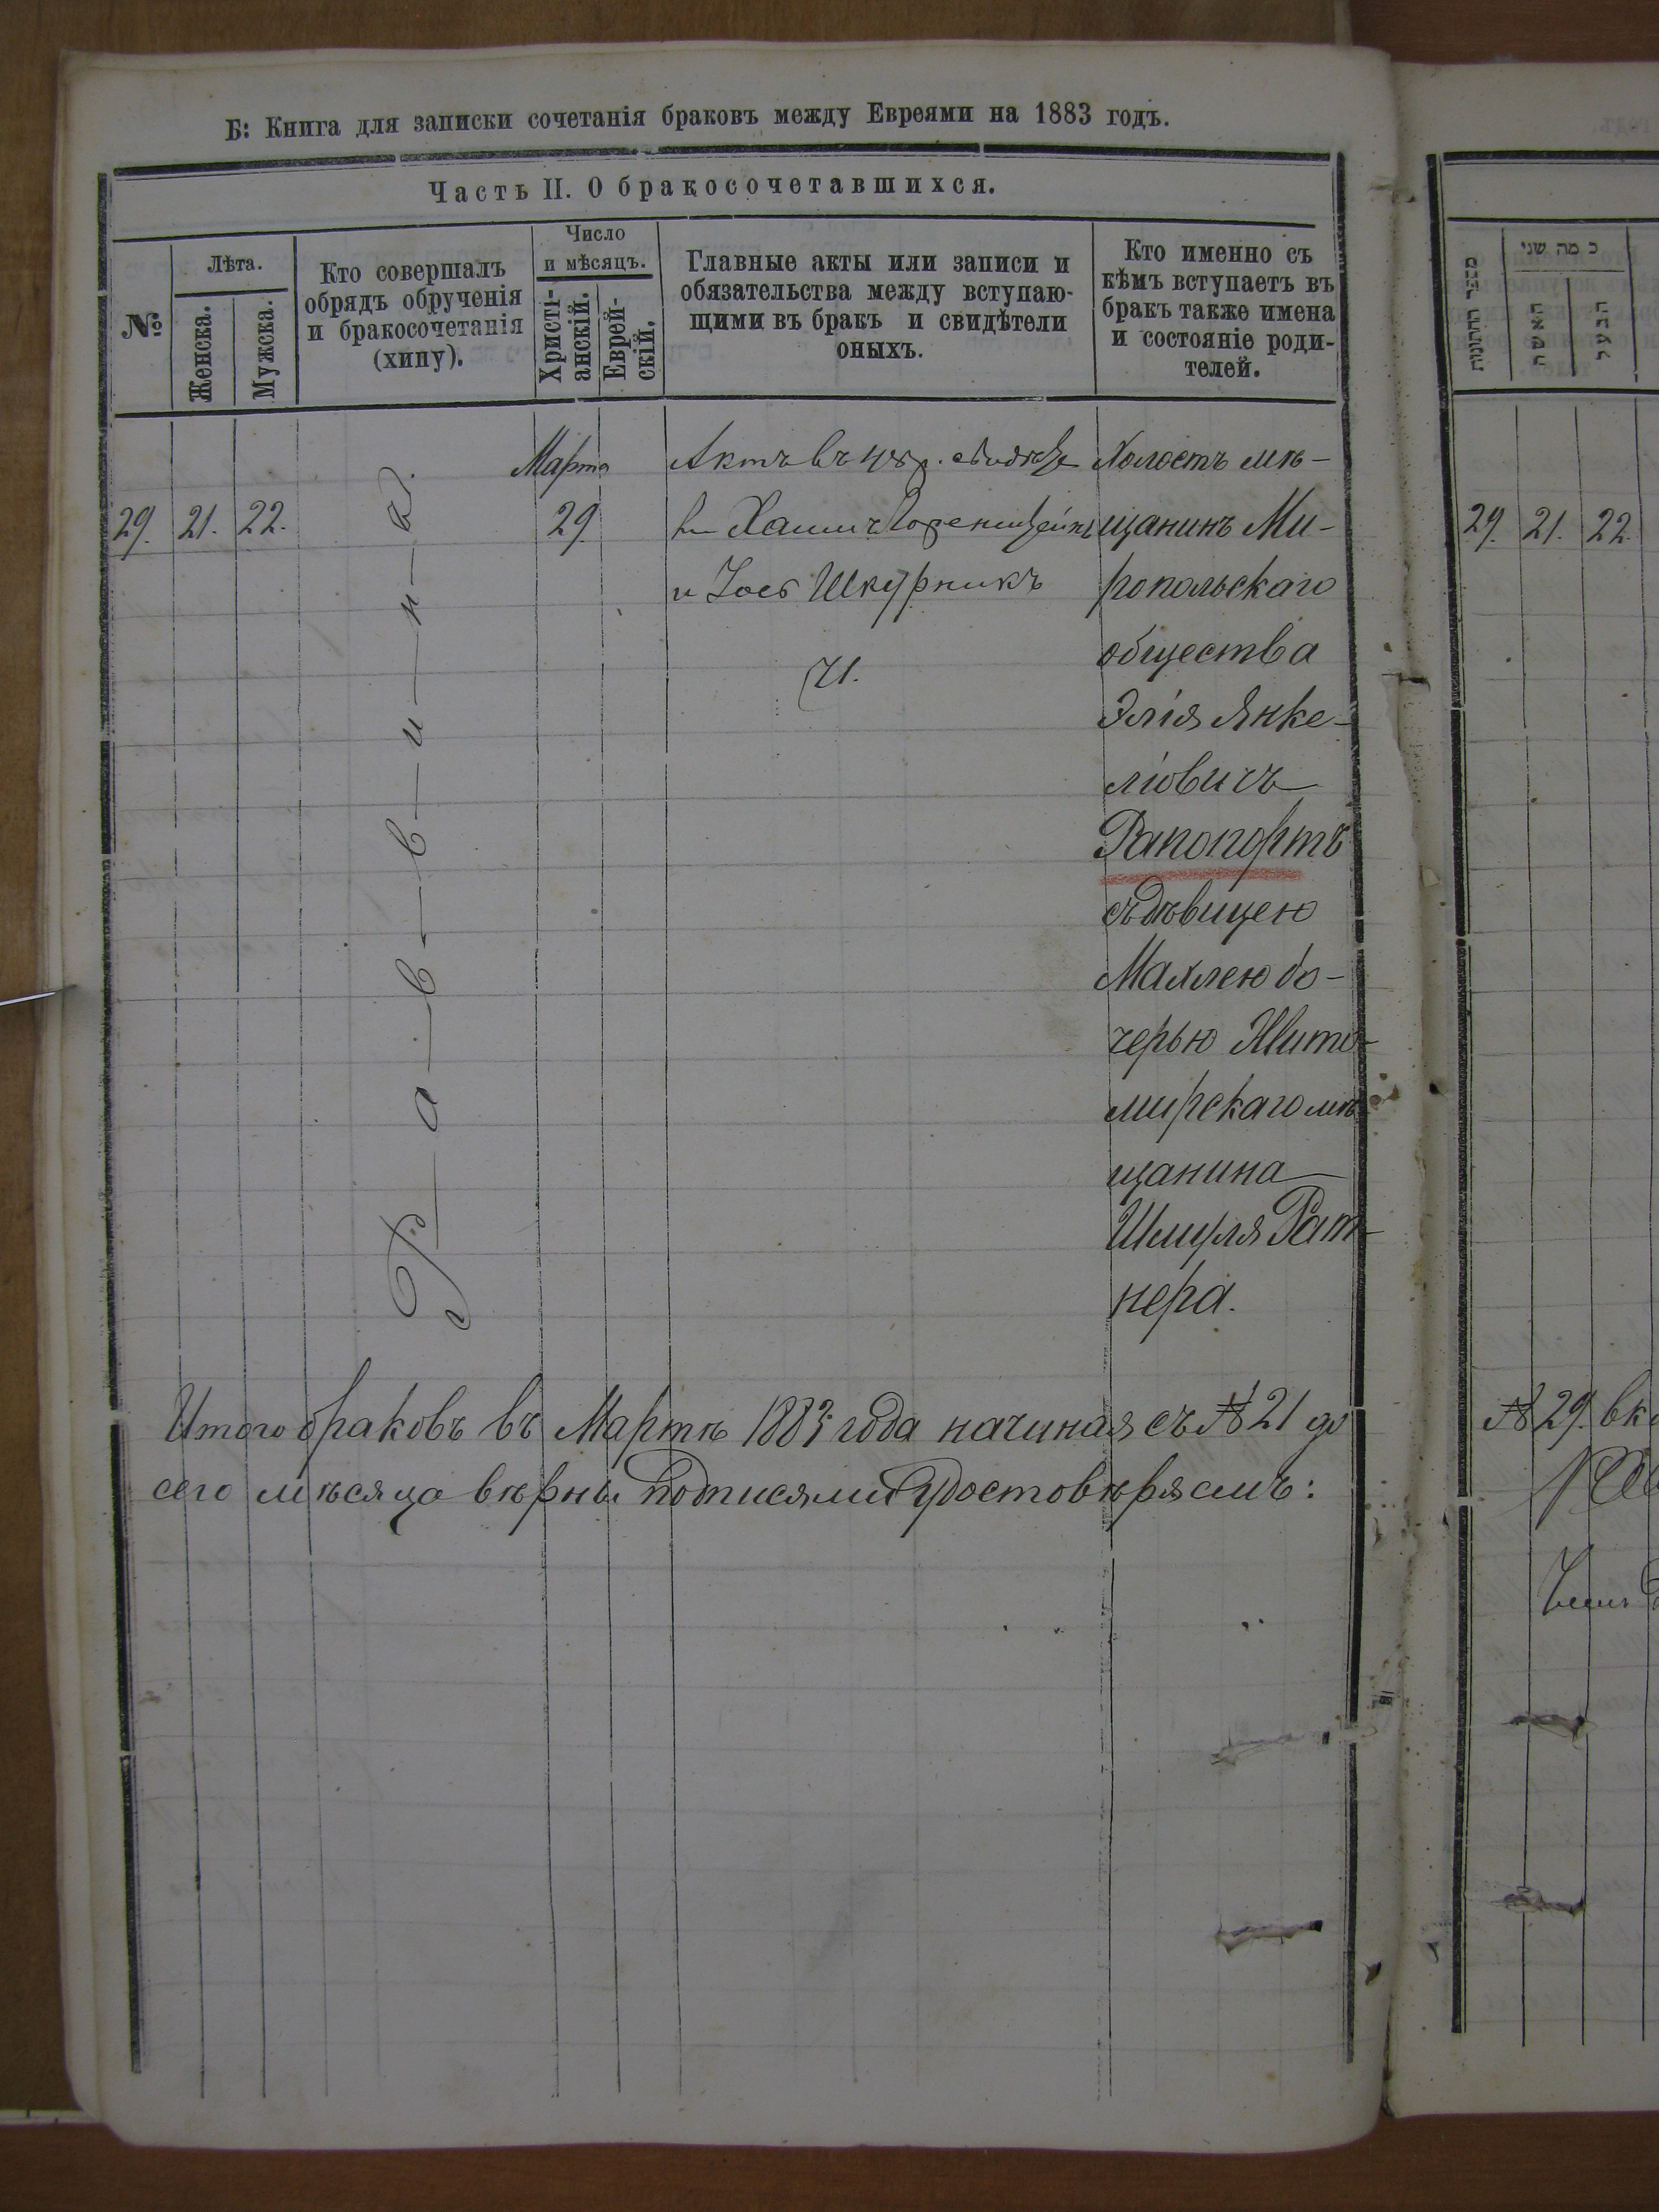 Б: Книга для записки сочетанія браковъ между Евреями на 1883 годъ.
Часть II. О бракосочетавшихся.
№
Лѣта.
Женска.
Мужска.
Кто совершалъ
обрядъ обрученія
и бракосочетанія
(хипу).
Число
и мѣсяцъ.
Христі-
анскій.
Еврей-
скій.
Главные акты или записи и
обязательства между вступаю-
щими въ бракъ и свидѣтели
оныхъ.
Кто именно съ
кѣмъ вступаетъ въ
бракъ также имена
и состояніе роди-
телей.
29.
21.
22.
Р-а-в-в-и-н-ъ.
Марта
29
Актъ въ 48 р.
Хаимъ
и Іось Шкурникъ
Ч.
Холостъ мѣ-
щанинъ Ми-
ропольскаго
общества
Элія Янке-
ліовичъ
Рапопортъ
съ дѣвицею
Махлею до-
черью Жито-
мирскаго мѣ
щанина
Шмуля Рат-
нера.
Итого браковъ въ Мартѣ 1883 года начиная съ № 21 до
сего мѣсяца вѣрны подписями удостовѣряемъ:
מספר החתונות
כמה שני
האשה
הבעל
29.
21.
22.
№ 29. вк